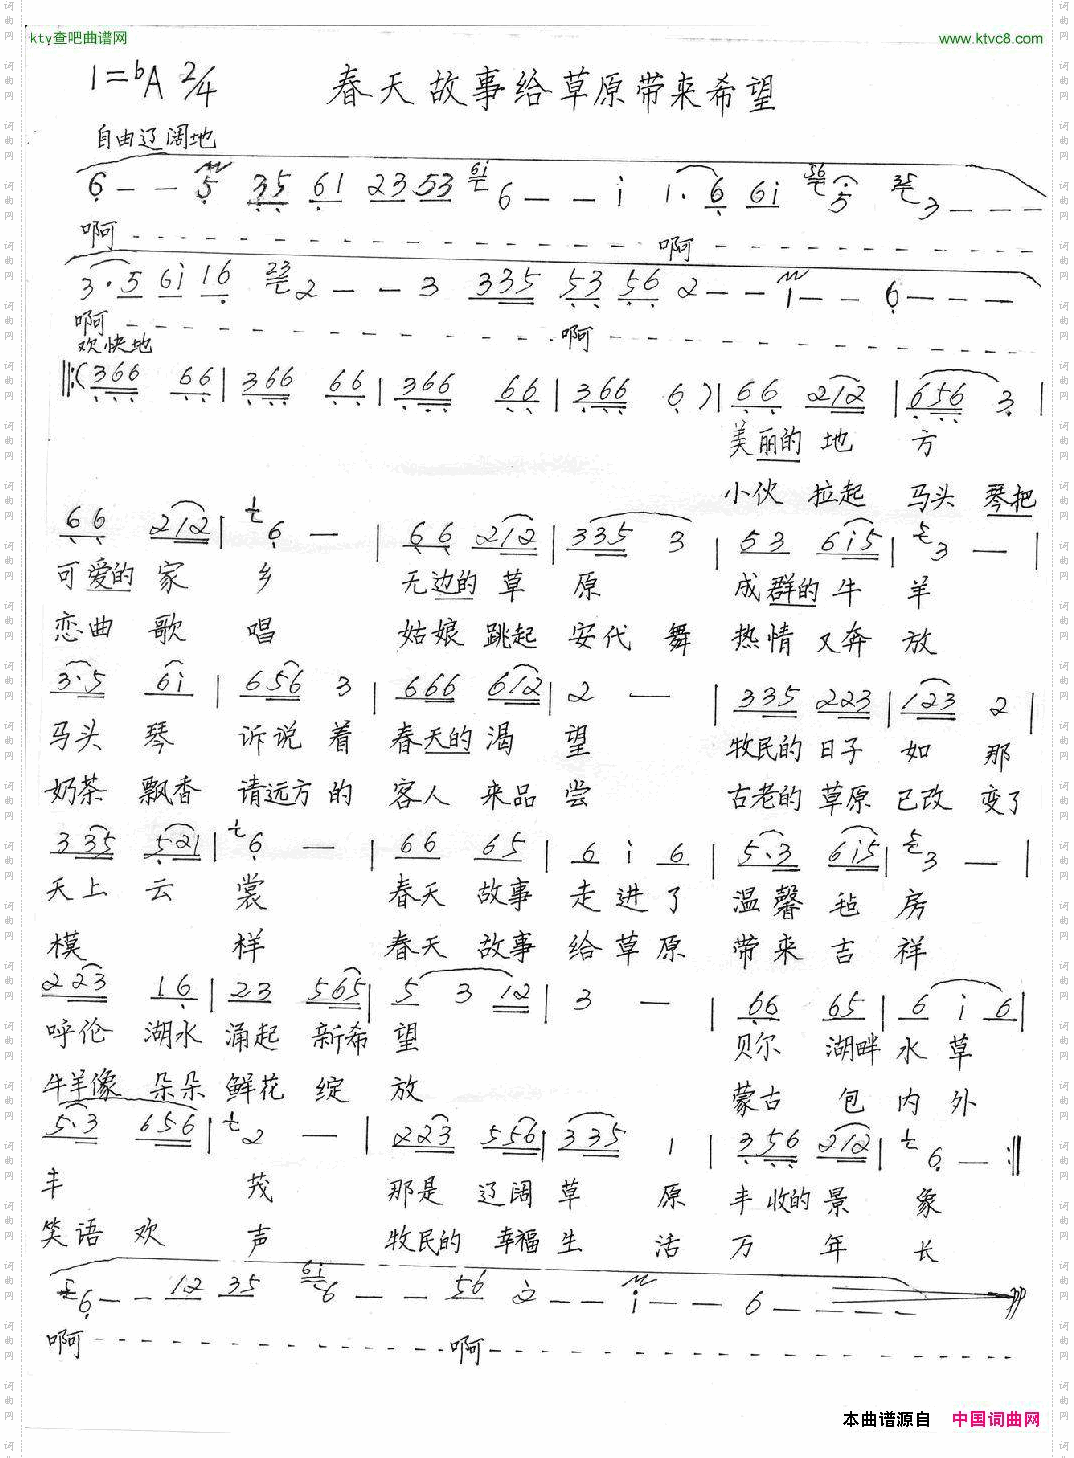 kty查吧曲谱网 www.ktvc8.com
1=bA 2/4 春天故事给草原带来希望
自由辽阔地
6 - - 5 35 61 23 53 61 6 - - i 1. 6 6i 56 5 35 3 - - -
啊 啊
3.5 6i 16 23 2 - - 3 335 53 56 2 - - 1 - - 6 - - -
啊 啊
欢快地
‖:(366 66 | 366 66 | 366 66 | 366 6 ) | 66 212 | 656 3 |
美丽的 地 方
小伙 拉起 马头 琴把
66 212 | 6 - | 66 212 | 335 3 | 53 6i5 | 3 - |
可爱的 家 乡 无边的 草 原 成群的 牛 羊
恋曲 歌 唱 姑娘 跳起 安代 舞 热情 又奔 放
3.5 6i | 656 3 | 666 612 | 2 - | 335 223 | 123 2 |
马头 琴 诉说 着 春天的 渴 望 牧民的 日子 如 那
奶茶 飘香 请远方 的 客人 来品 尝 古老的 草原 已改 变了
335 521 | 6 - | 66 65 | 6 i 6 | 5.3 6i5 | 3 - |
天上 云 裳 春天 故事 走进了 温馨 毡 房
模 样 春天 故事 给草原 带来 吉 祥
223 16 | 23 565 | 5 3 12 | 3 - | 66 65 | 6 i 6 |
呼伦 湖水 涌起 新希 望 贝尔 湖畔 水 草
牛羊像 朵朵 鲜花 绽 放 蒙古 包 内 外
5.3 656 | 2 - | 223 556 | 335 1 | 356 212 | 6 - :‖
丰 茂 那是 辽阔 草 原 丰收的 景 象
笑语 欢 声 牧民的 幸福 生 活 万 年 长
6 - - 12 35 61 6 - - 56 2 - - i - - 6 - - - -
啊 啊
本曲谱源自 中国词曲网